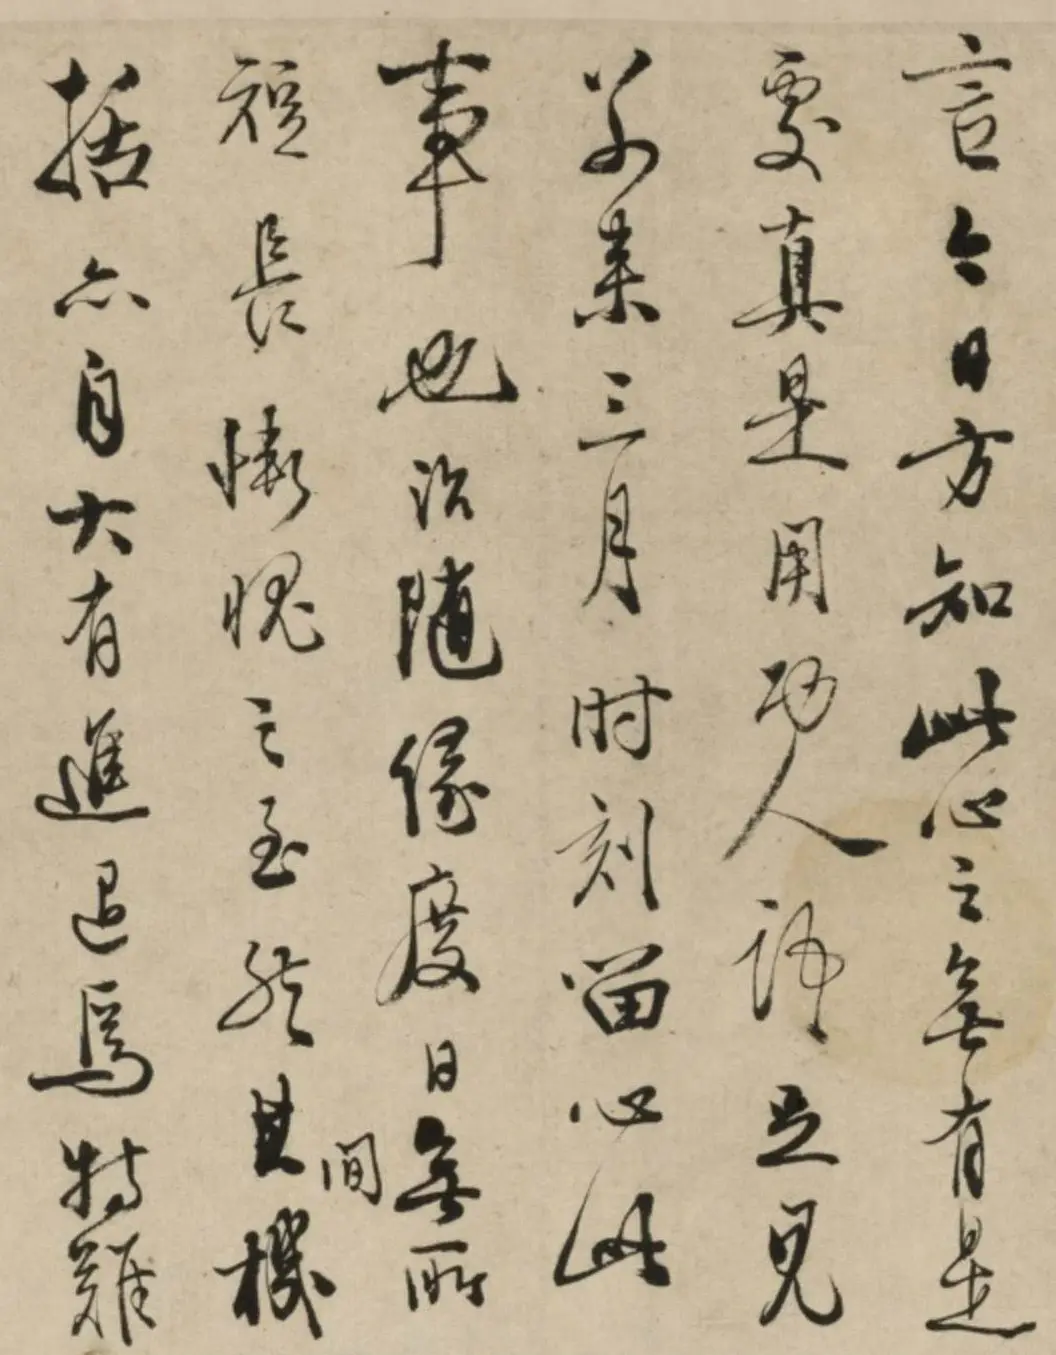 言今日方知此心之無有是
處真是用功人語足見
別来三月时刻留心此
事也治隨緣度日無所
短長慚愧之至然其間機
括亦自大有進退焉特難